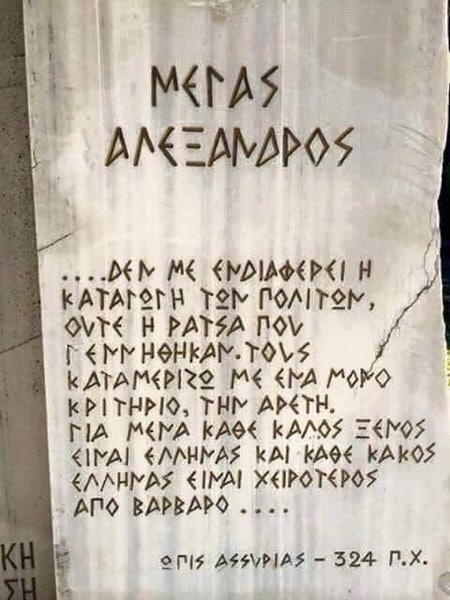 ΜΕΓΑΣ
ΑΛΕΞΑΝΔΡΟΣ
....ΔΕΝ ΜΕ ΕΝΔΙΑΦΕΡΕΙ Η
ΚΑΤΑΓΩΓΗ ΤΩΝ ΠΟΛΙΤΩΝ,
ΟΥΤΕ Η ΡΑΤΣΑ ΠΟΥ
ΓΕΝΝΗΘΗΚΑΝ.ΤΟΥΣ
ΚΑΤΑΜΕΡΙΖΩ ΜΕ ΕΝΑ ΜΟΝΟ
ΚΡΙΤΗΡΙΟ, ΤΗΝ ΑΡΕΤΗ.
ΓΙΑ ΜΕΝΑ ΚΑΘΕ ΚΑΛΟΣ ΞΕΝΟΣ
ΕΙΝΑΙ ΕΛΛΗΝΑΣ ΚΑΙ ΚΑΘΕ ΚΑΚΟΣ
ΕΛΛΗΝΑΣ ΕΙΝΑΙ ΧΕΙΡΟΤΕΡΟΣ
ΑΠΟ ΒΑΡΒΑΡΟ ....
ΩΠΙΣ ΑΣΣΥΡΙΑΣ - 324 Π.Χ.
ΚΗ
ΣΗ